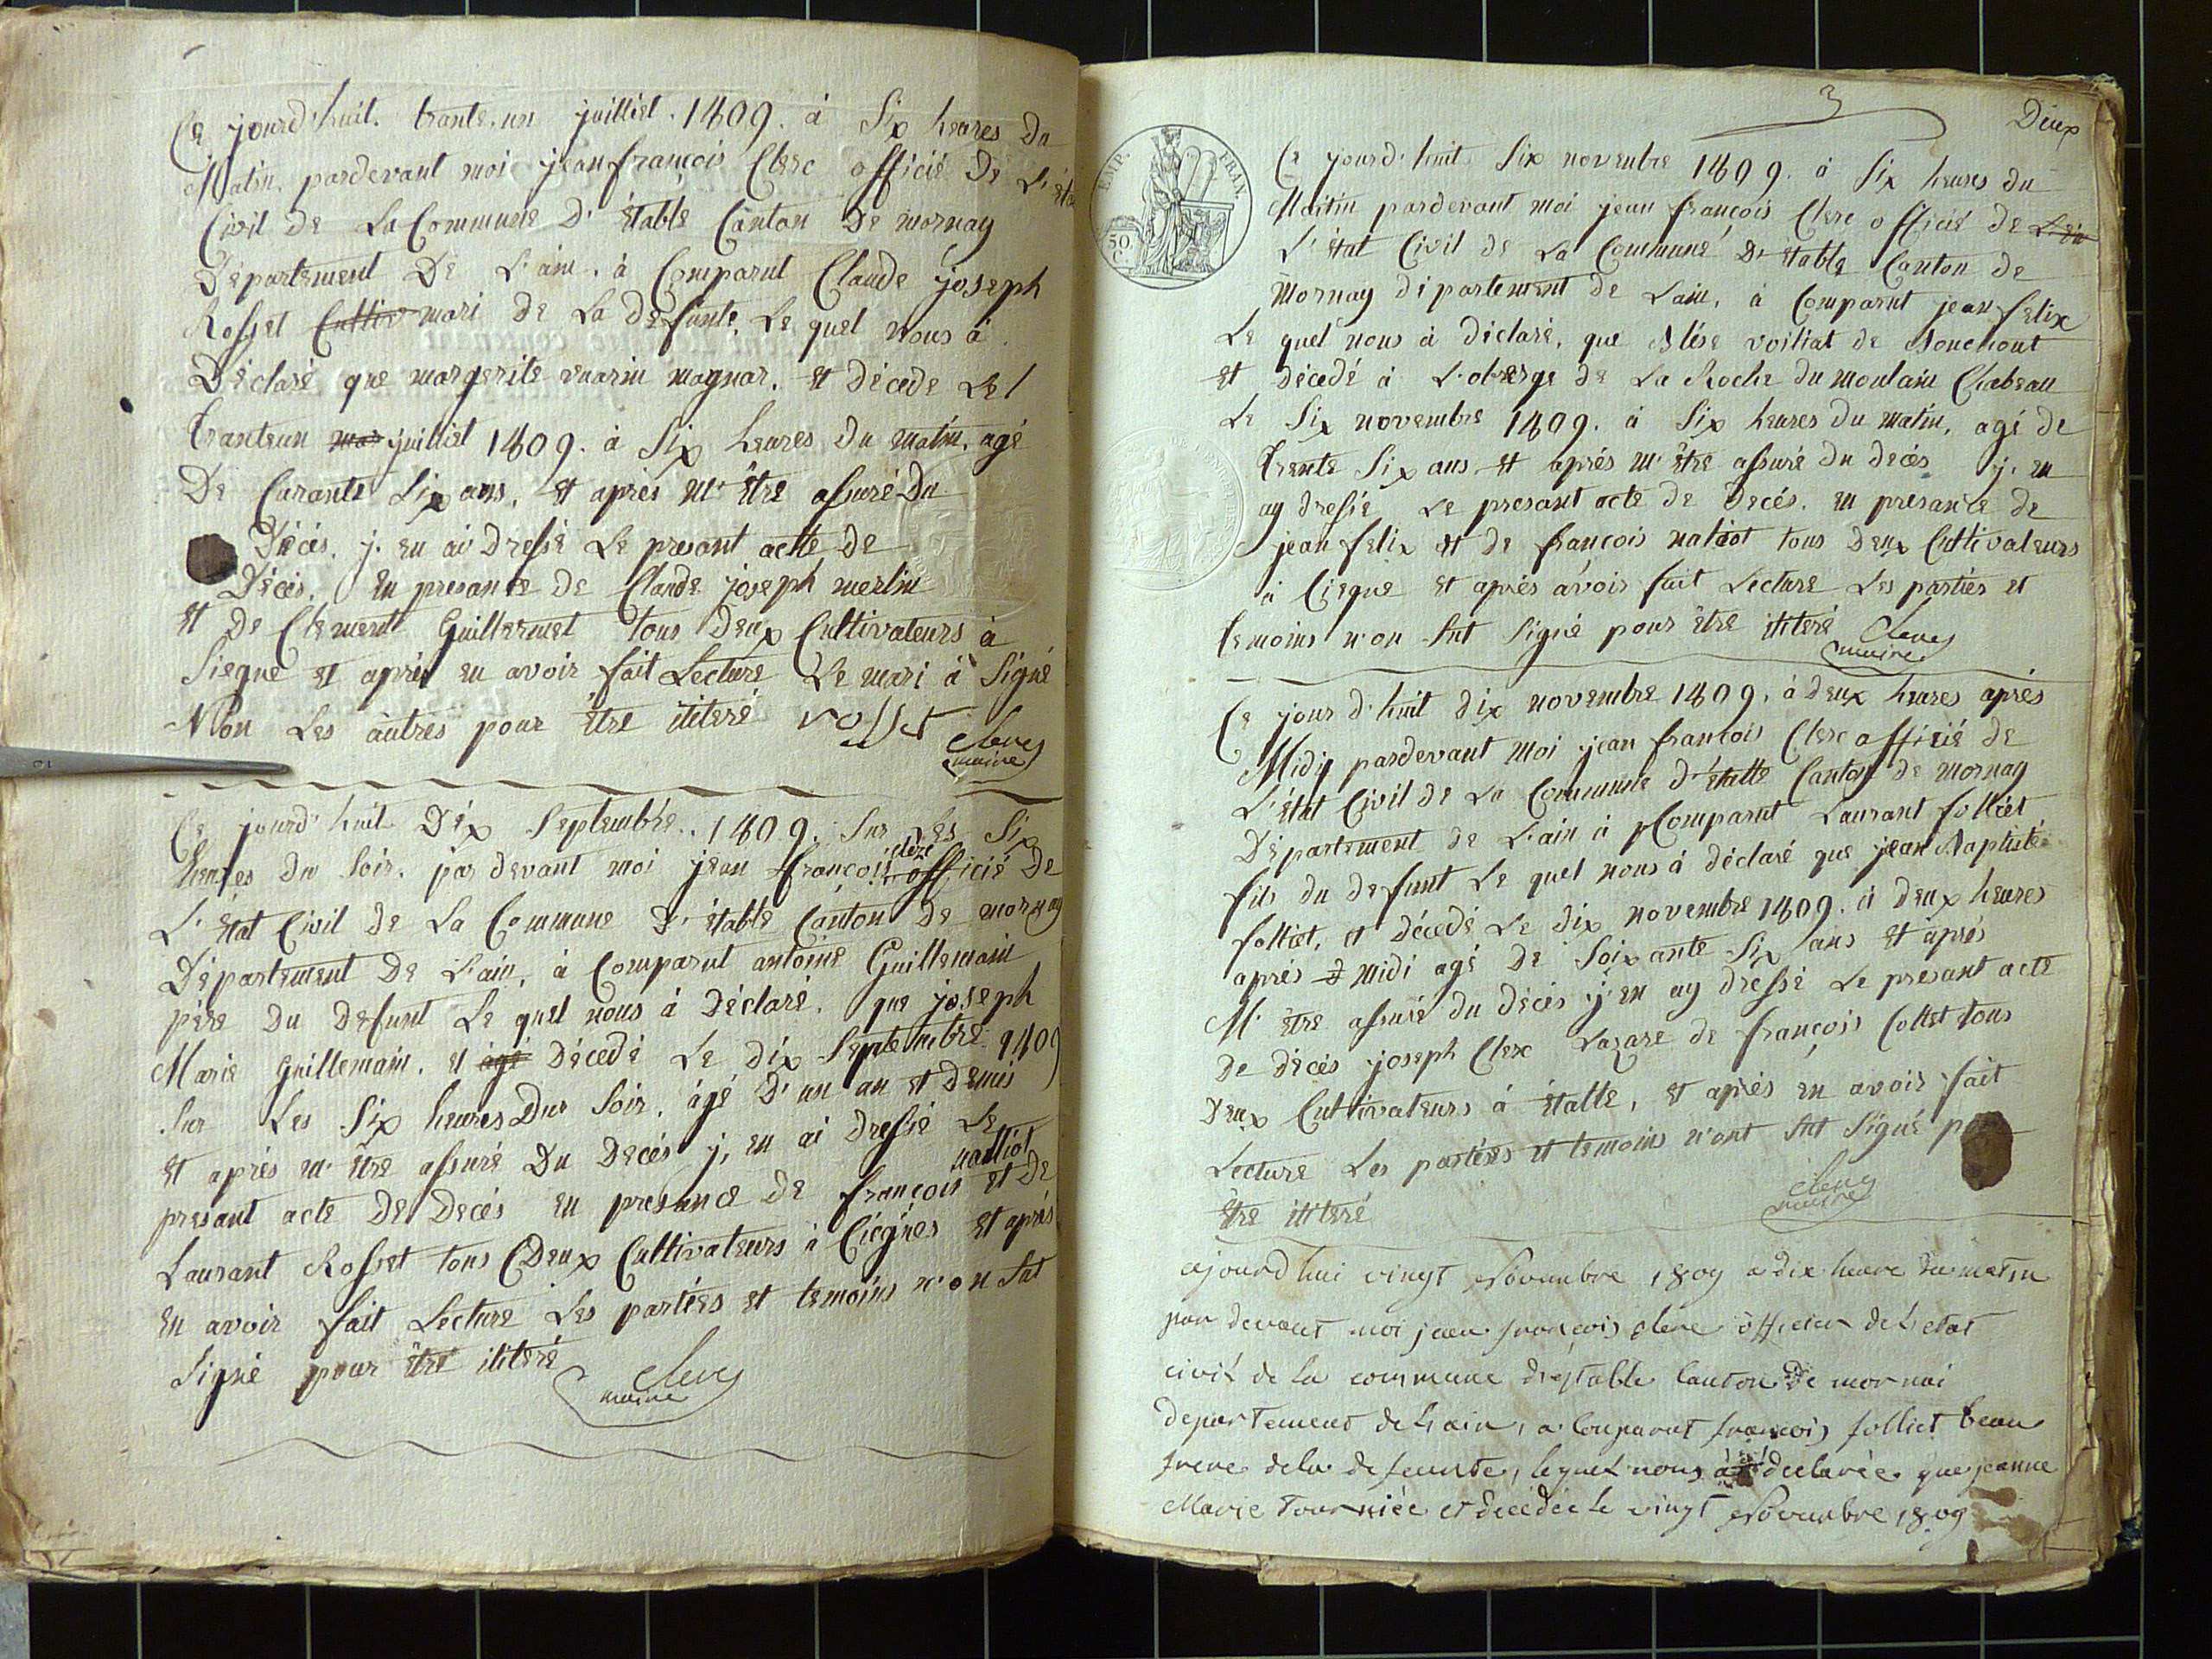 Ce jourd'huit. trante.un juilliet. 1809. à Six heures du
Matin. pardevant moi jean françois Clerc officié de L'éta
Civil de La Commune D'étable Canton De mornay
Département De L'ain. à Comparut Claude joseph
Rosset Cultiv mari de La defunte. Le quel nous à
Déclaré que margerite marin magnar. et décede Le
tranteun mar juilliet 1809. à Six heures du matin, agé
De Carante Six ans, et après m'être assuré Du
Décés, j. en ai Dressé Le presant acte de
Décés. en presance de Claude joseph merlin
et De Clement Guillermet tous Deux Cultivateurs à
Siegne et après en avoir fait Lecture Le mari à Signé
Non Les autres pour être ititeré rosset
clerc
maire
Ce jourd'huit Dix Septembre. 1809. Sur Les Six
heures du Soir. par devant moi jean françois clerc officié de
L'état Civil de La Commune D'étable Canton de mornay
Département De L'ain, à Comparut antoine Guillemain
père Du Defunt Le quel nous à Déclaré. que joseph
Marie Guillemain. et agé Décedé Le Dix Septembre 1809
Sur Les Six heures Du Soir. âgé D'un an et Demis
et après m'être assuré Du Decés j, en ai dressé Le
presant acte De Decés en presance de françois natliot et de
Laurant Rosset tous Deux Cultivateurs à Ciégnes et après
en avoir fait Lecture Les parties et temoins n'on Sut
Signé pour être ititeré
clerc
maire
3
Deux
EMP. FRAN.
50.
C.
Ce jourd'huit Six novembre 1809. à Six heures du
Maitin pardevant moi jean françois Clerc officié de L'éta
L'état Civil de La Commune D'étable Canton de
Mornay département de Lain, à Comparut jean felix
Le quel nous à déclaré, que voiliat de
et décedé à L'oberge de La Roche du moulain Chabeau
Le Six novembre 1809. à Six heures du matin, agé de
trente Six ans et après m'être assuré du decés j. en
ay dressé Le presant acte de Decés. en presance de
jean felix et de françois natiot tous deux Cultivateurs
à Ciegne et après avoir fait Lecture Les parties et
temoins n'on Sut Signé pour être ititeré
clerc
maire
Ce jour d'huit dix novembre 1809. à deux heures après
Midy pardevant Moi jean françois Clerc officié de
L'état Civil de La Commune d'étatte Canton de mornay
Département de L'ain à Comparut Laurant folliet
fils du defunt Le quel nous à déclaré que jean Baptiste
folliet, et décedé Le dix novembre 1809. à deux heures
après d midi agé de Soixante Six ans et après
M'être assuré du decés j'en ay dressé Le presant acte
de decés joseph Clerc Lazare de françois Collet tous
Deux Cultivateurs à étatte, et après en avoir fait
Lecture Les parties et temoins n'ont Sut Signé pour
être ititeré
clerc
maire
ajourd hui vingt Novembre 1809 a dix heure du matin
par devant moi jean françois clerc officier de L'etat
civil de la commune d'éstable Canton de mornai
departement de L'ain, a Comparut françois folliet beau
frere de la defeunte, lequel nous à declarée que jeanne
Marie Tourniée et decedée le vingt Novembre 1809